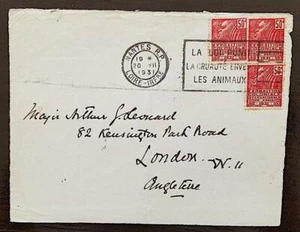 NANTES R.P.
19 *
20 - II
1931
LOIRE-INFRE
LA LOI PUNIT
LA CRUAUTÉ ENVE
LES ANIMAUX
50c
50c
50c
Major Arthur G Leonard
82 Kensington Park Road
London W. 11
Angleterre